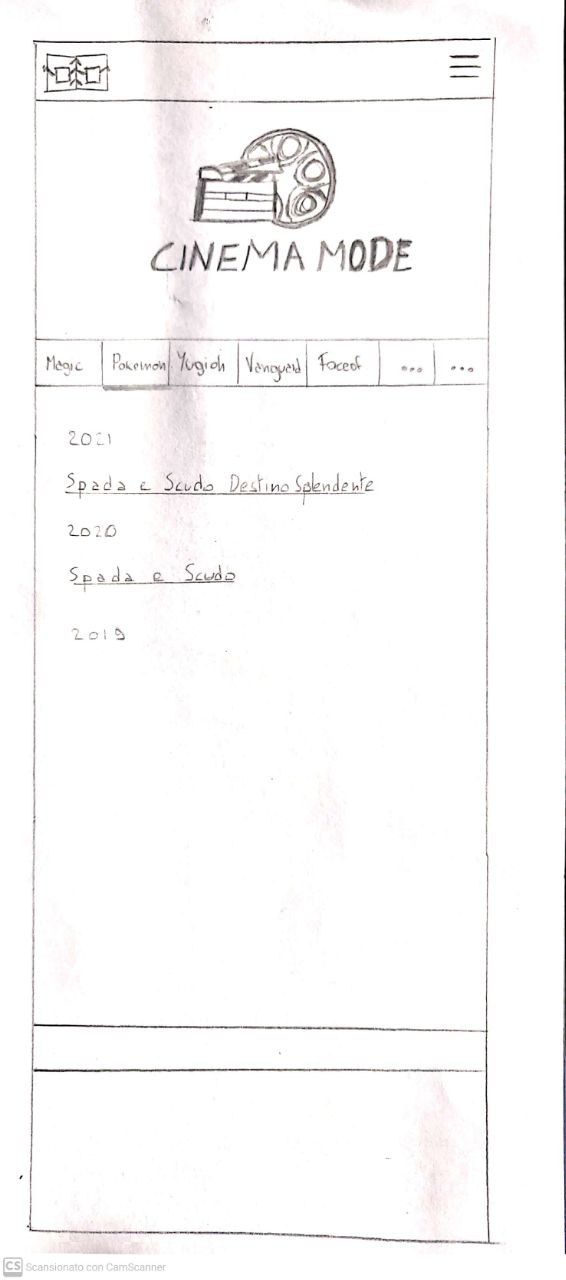 CINEMA MODE
Magic Pokemon Yugioh Vanguard Faceof ... ...
2021
Spada e Scudo Destino Splendente
2020
Spada e Scudo
2019
CS Scansionato con CamScanner